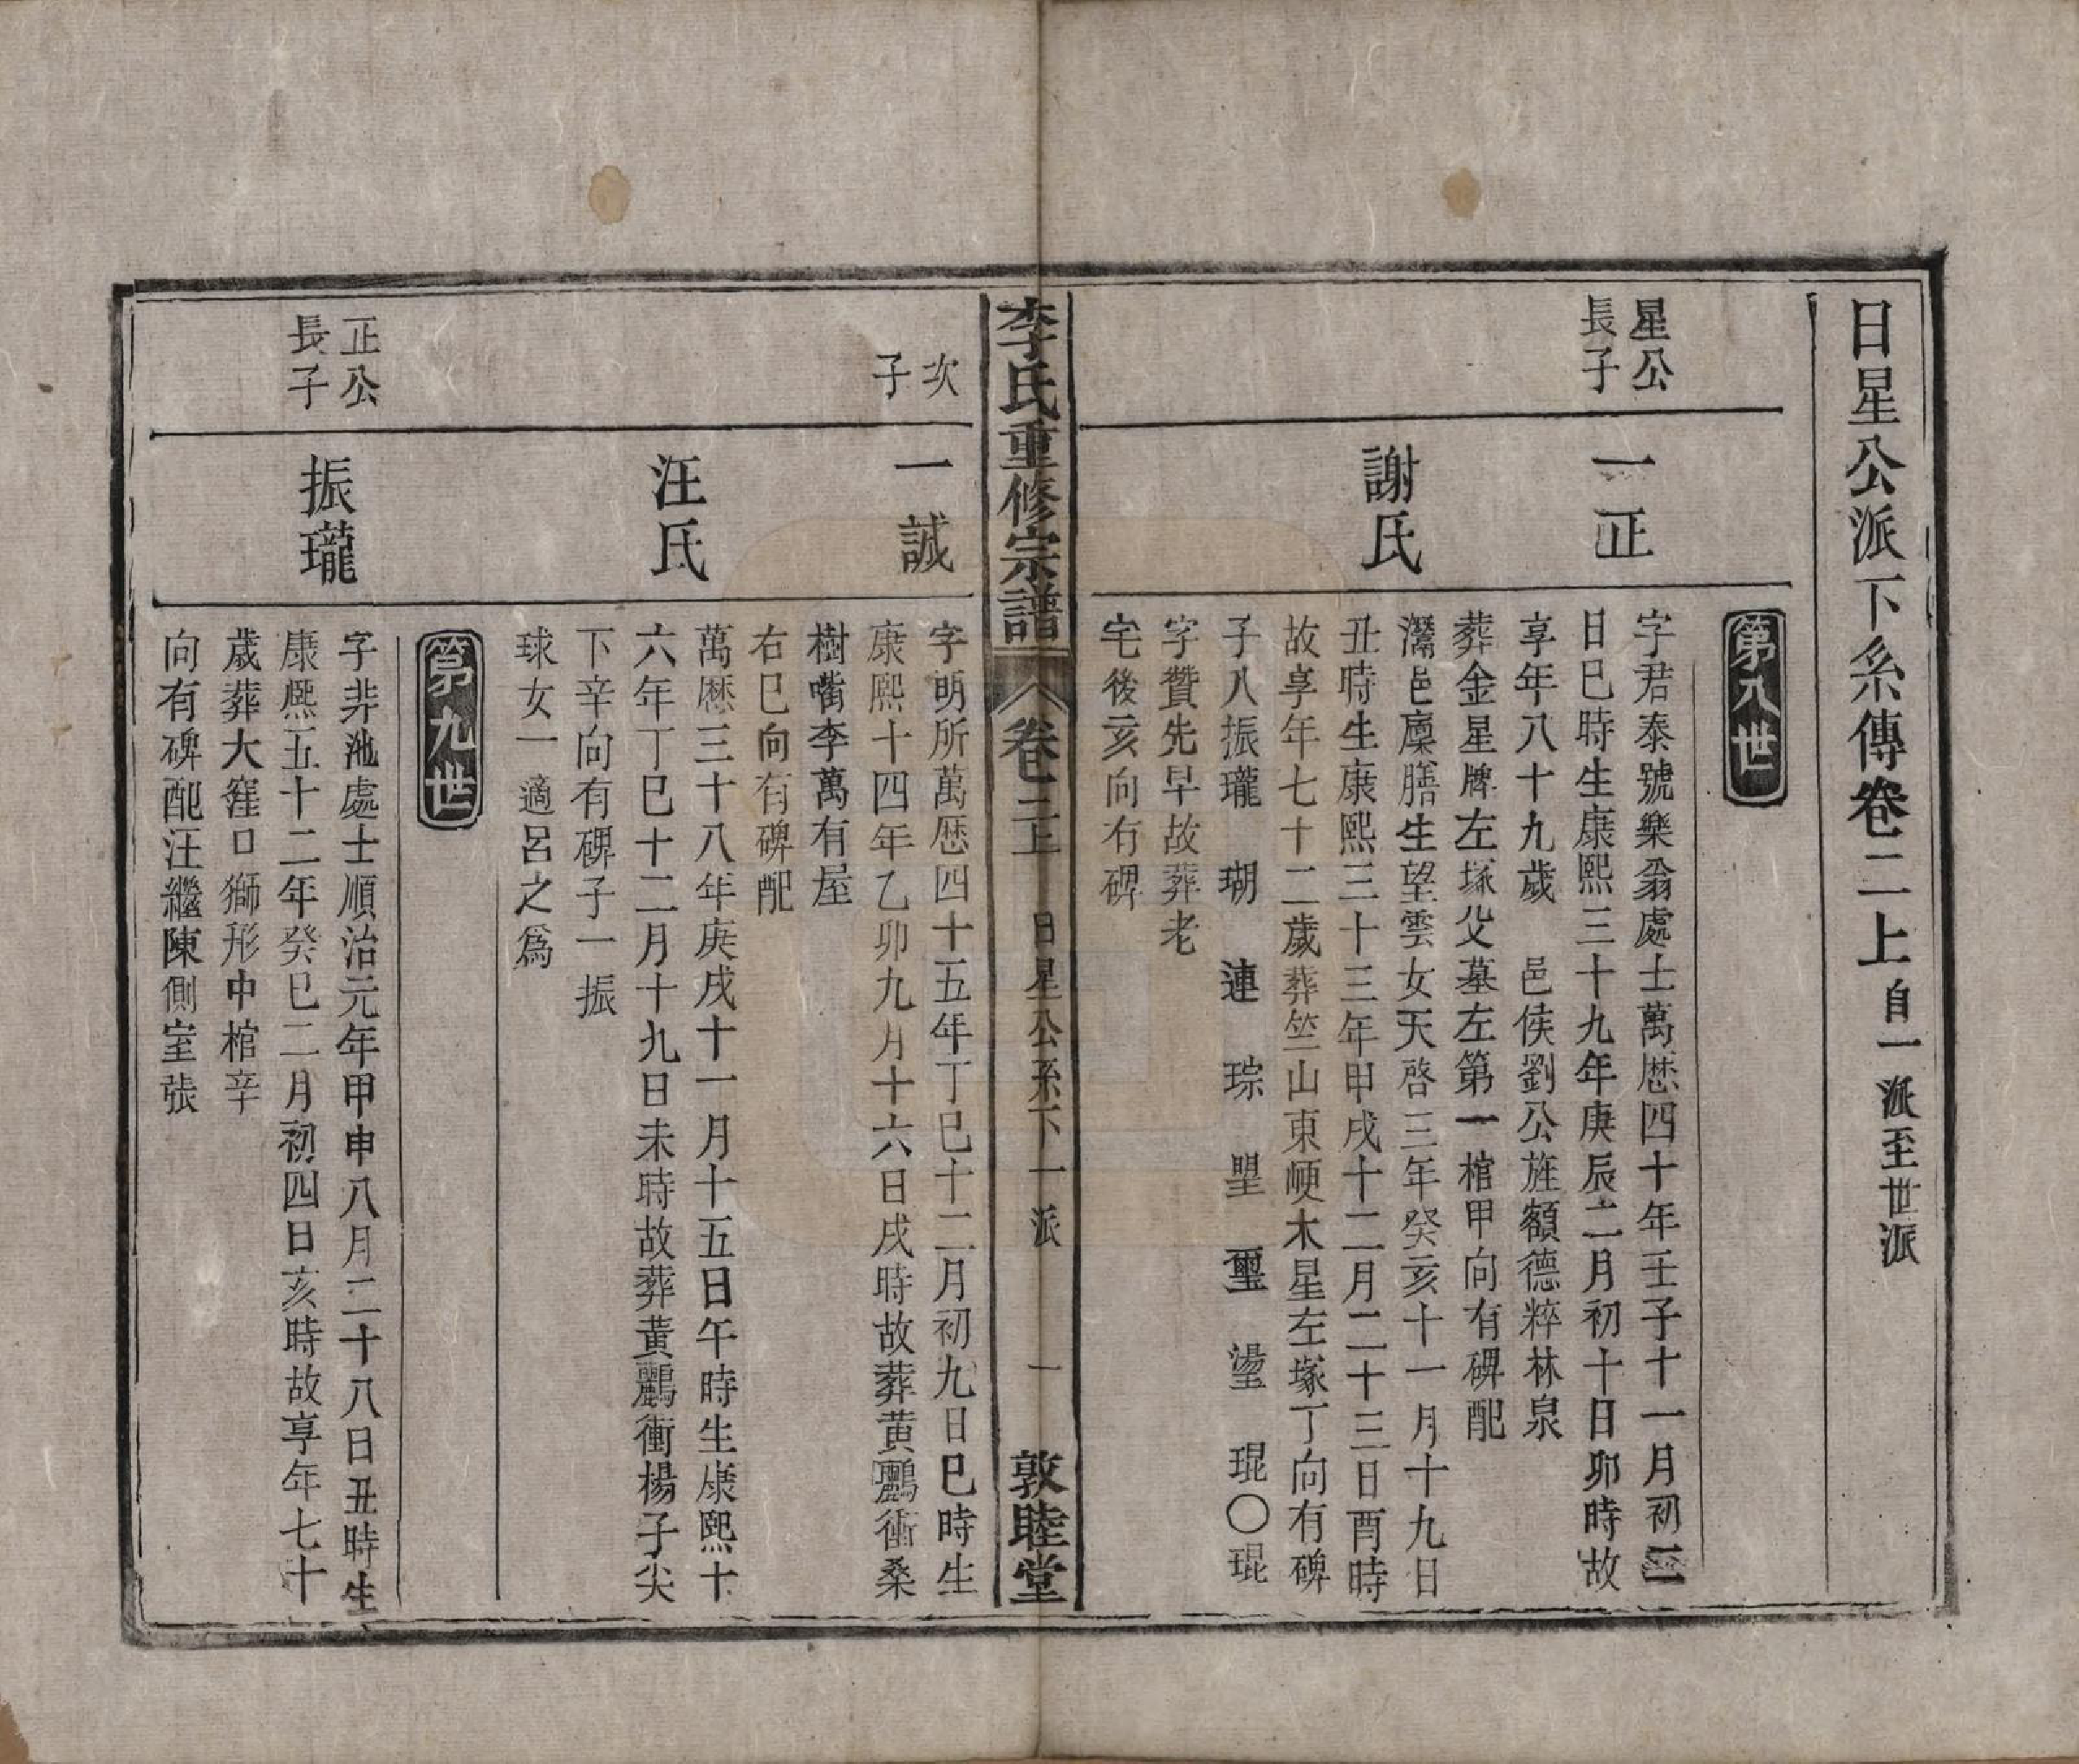 日星公派下糸傳卷二上自一派至世派
第八世
星公
長子
一正
字君泰號樂翁處士萬歷四十年壬子十一月初二
日巳時生康熙三十九年庚辰二月初十日卯時故
享年八十九歲 邑侯劉公旌額德粹林泉
葬金星牌左塚父墓左第一棺甲向有碑配
謝氏
灊邑廩膳生望雲女天啓三年癸亥十一月十九日
丑時生康熙三十三年甲戌十二月二十三日酉時
故享年七十二歲葬竺山東峺木星左塚丁向有碑
子八振瓏 瑚 璉 琮 琞 璽 璗 琨〇琨
字贊先早故葬老
宅後亥向有碑
李氏重修宗譜 卷二上 日星公系下一派 一 敦睦堂
次
子
一誠
字明所萬歷四十五年丁巳十二月初九日巳時生
康熙十四年乙卯九月十六日戌時故葬黄鸝衝桑
樹嘴李萬有屋
右巳向有碑配
汪氏
萬歷三十八年庚戌十一月十五日午時生康熙十
六年丁巳十二月十九日未時故葬黃鸝衝楊子尖
下辛向有碑子一振
球女一適呂之爲
第九世
正公
長子
振瓏
字非池處士順治元年甲申八月二十八日丑時生
康熙五十二年癸巳二月初四日亥時故享年七十
歲葬大窪口獅形中棺辛
向有碑配汪繼陳側室張